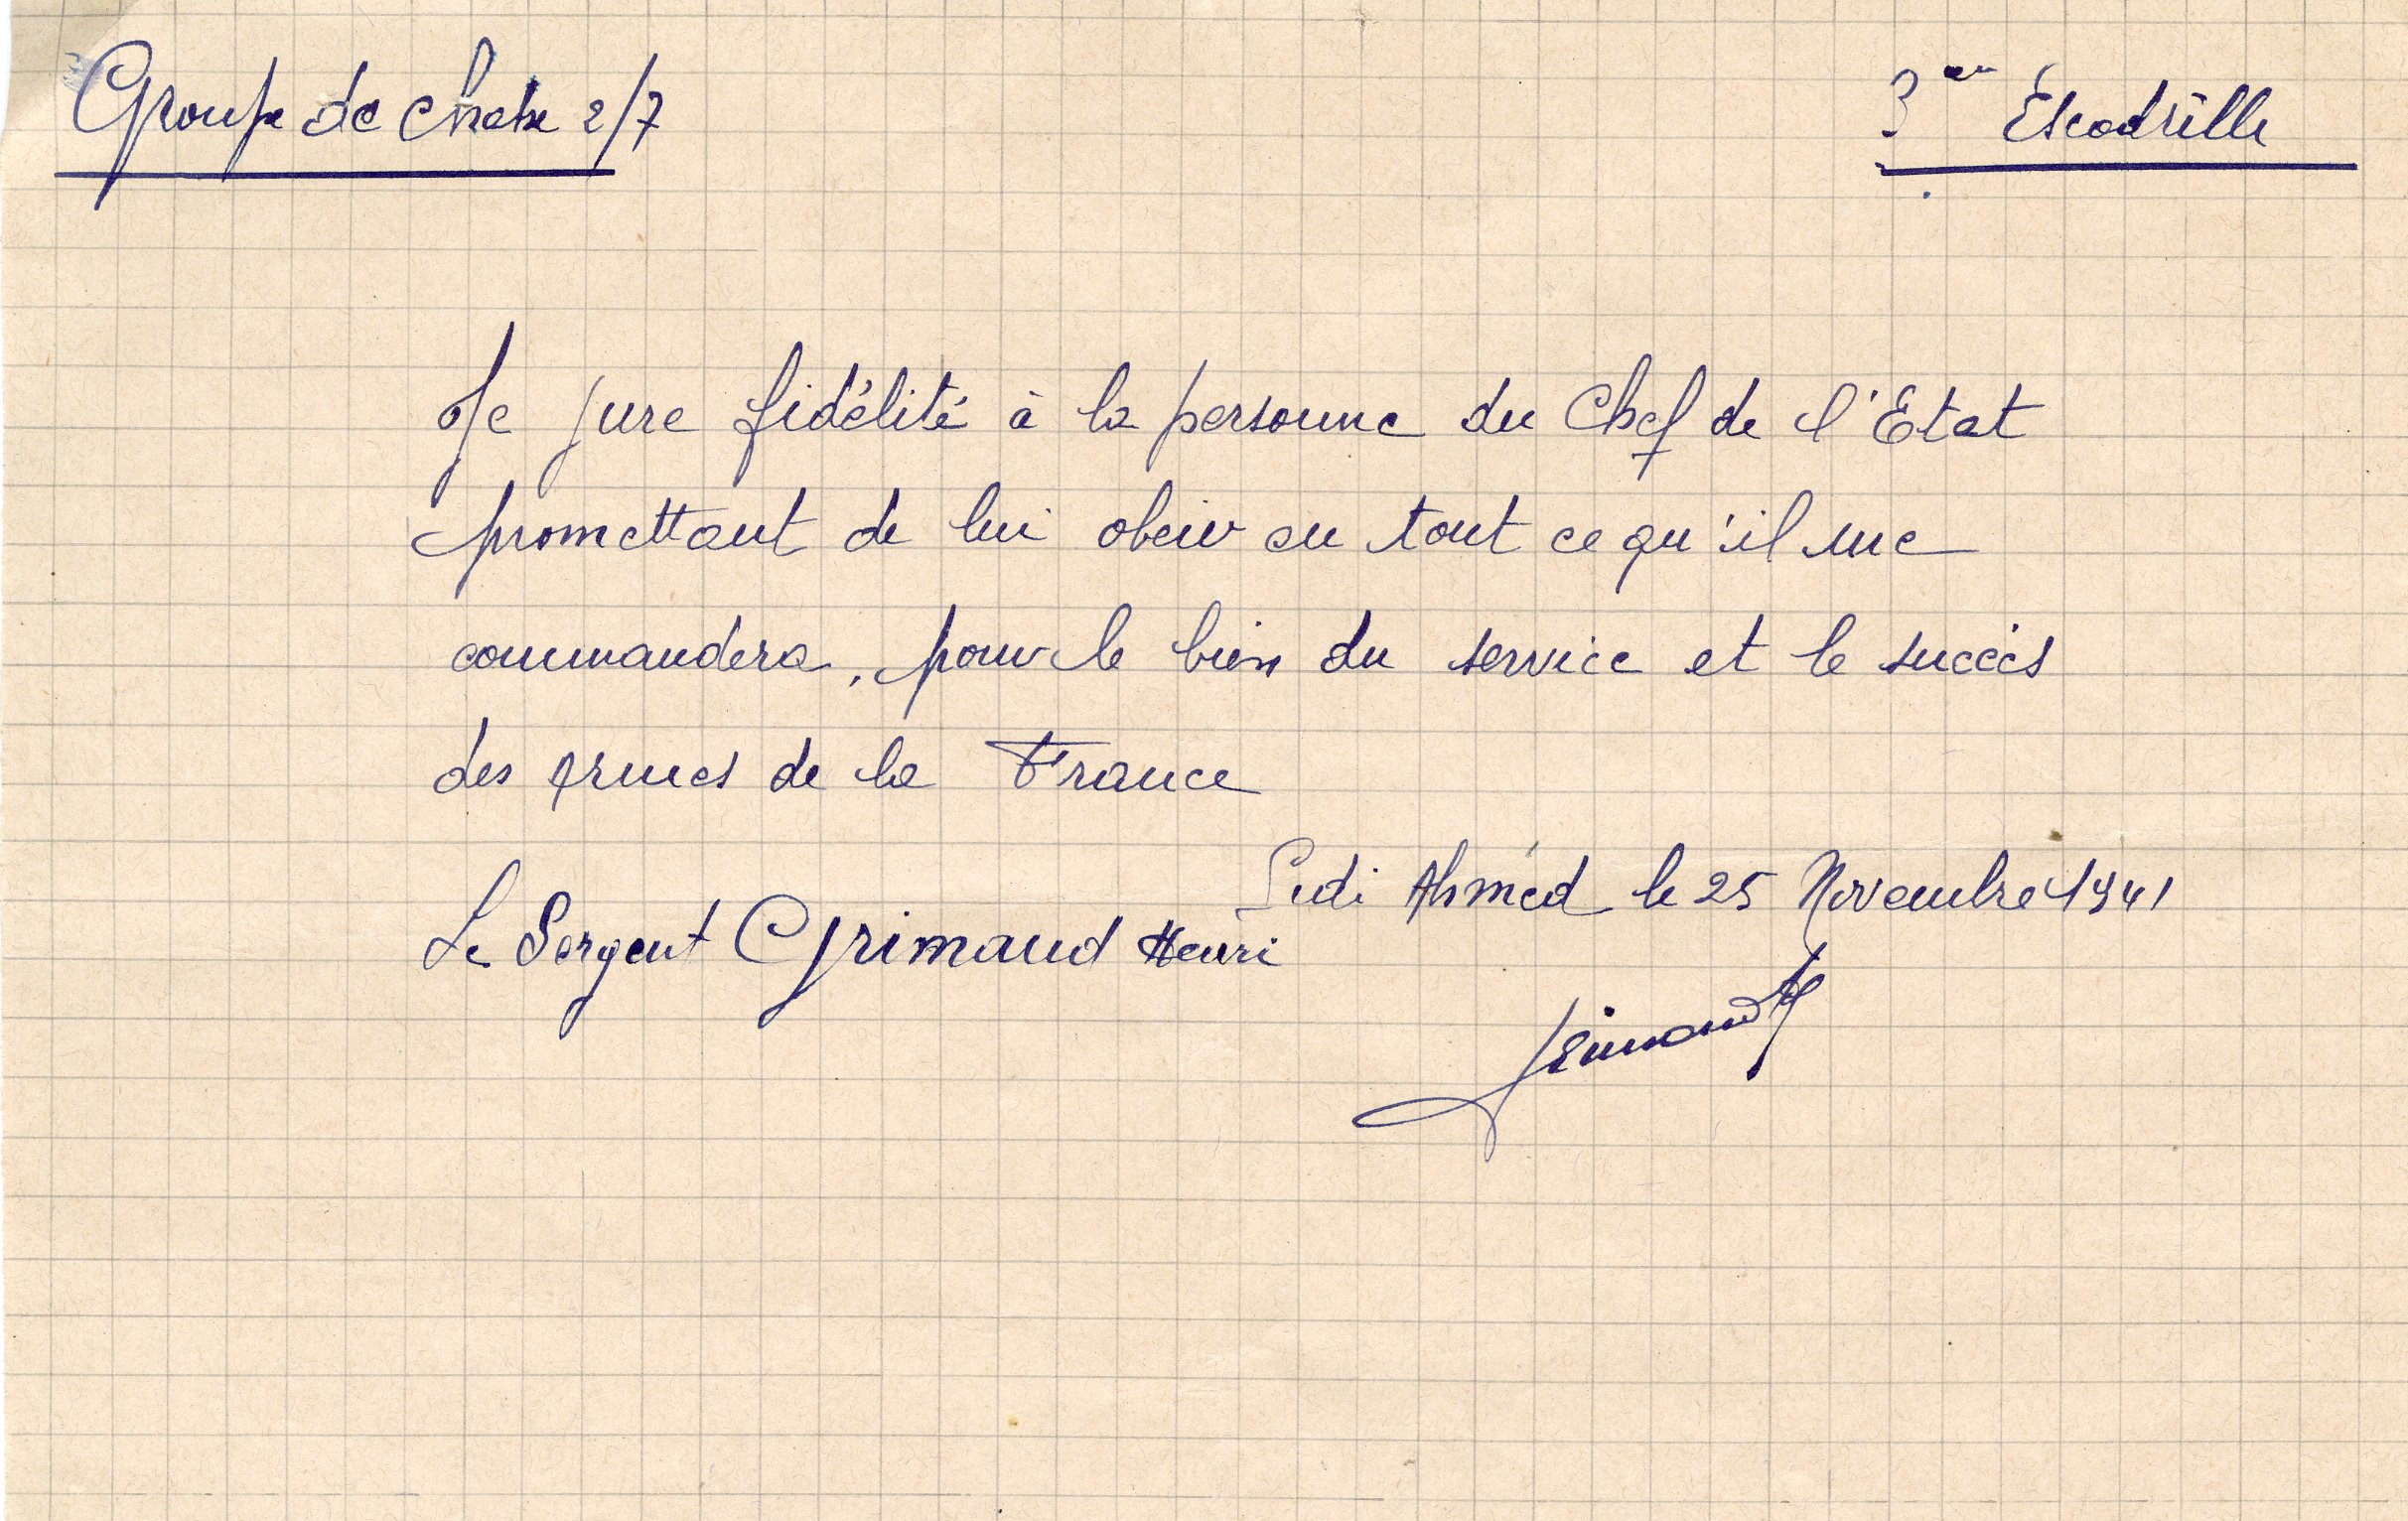 Groupe de Chasse 2/7
3ème Escadrille
Je jure fidélité à la personne du Chef de l'Etat
promettant de lui obeir en tout ce qu'il me
commandera, pour le bien du service et le succès
des Armes de la France
Sidi Ahmed le 25 Novembre 1941
Le Sergent Grimaud Henri
Grimaud H